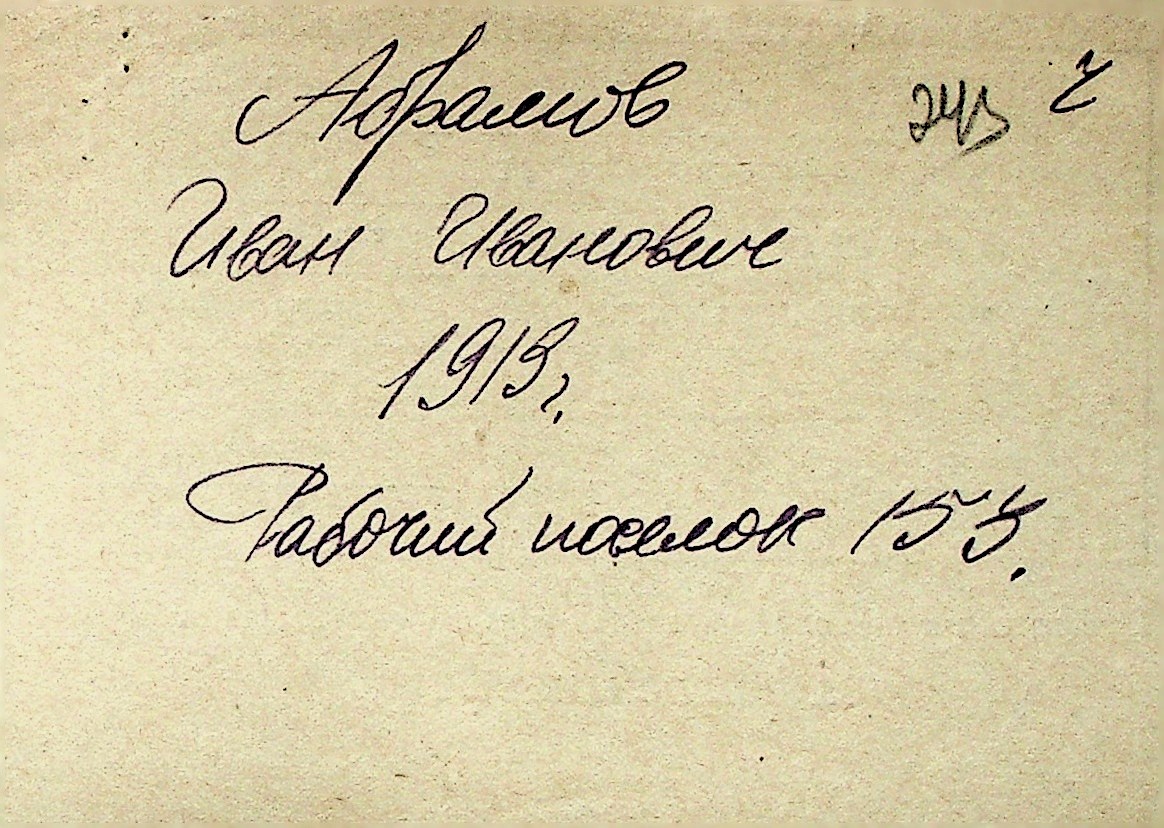 Абрамов
Иван Иванович
1913 г.
Рабочий поселок